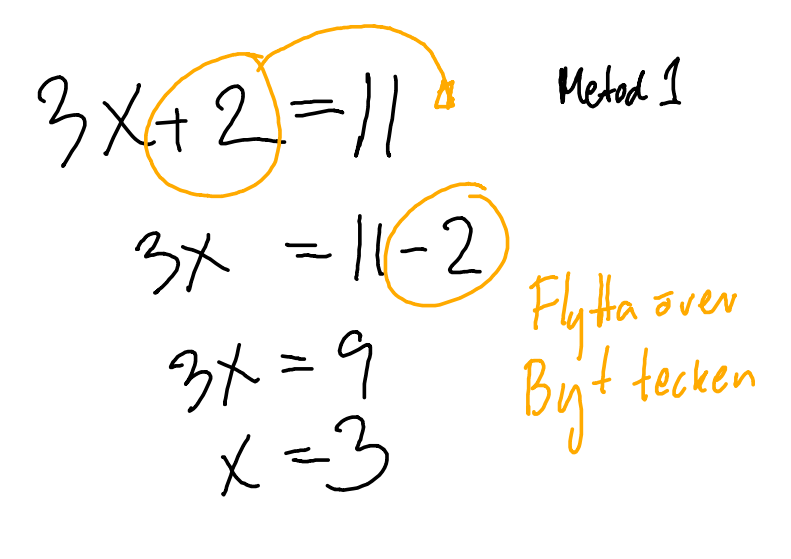 3x+2=11
Metod 1
3x = 11-2
Flytta över
Byt tecken
3x = 9
x = 3